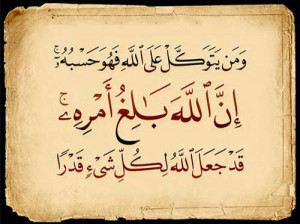 وَمَن يَتَوَكَّلْ عَلَى ٱللَّهِ فَهُوَ حَسْبُهُۥٓ ۚ
إِنَّ ٱللَّهَ بَـٰلِغُ أَمْرِهِۦ ۚ
قَدْ جَعَلَ ٱللَّهُ لِكُلِّ شَىْءٍ قَدْرًا